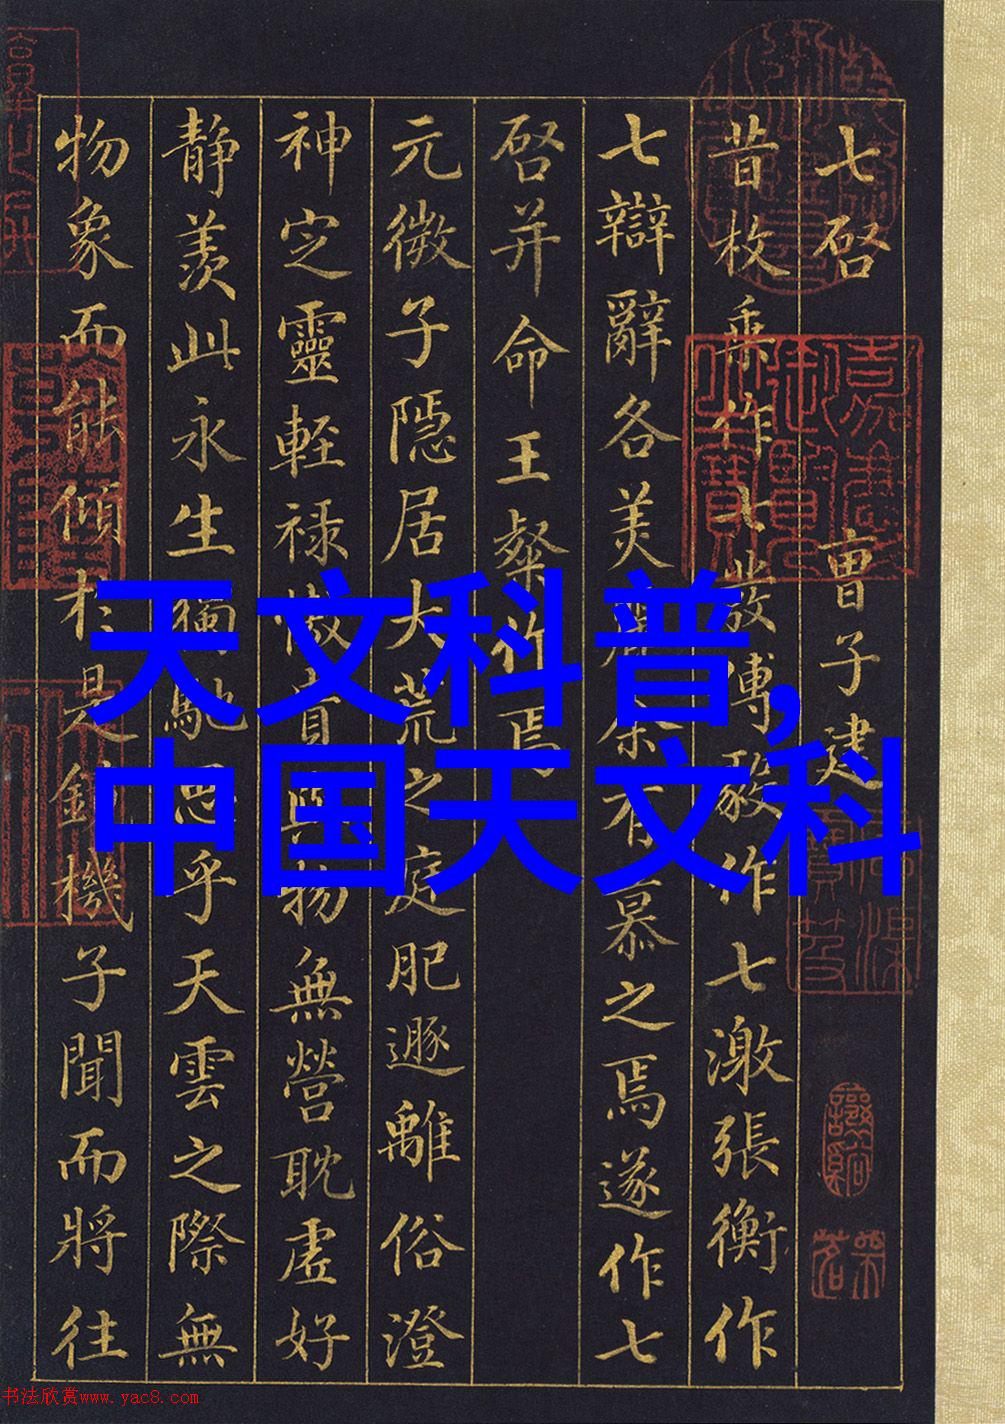 七啓 曹子建
昔枚乘作七發傅毅作七激張衡作
七辯辭各美麗余有慕之焉遂作七
啓并命王粲作焉
元微子隱居大荒之庭肥遯離俗澄
神定靈輕祿傲貴與物無營耽虛好
靜羨此永生獨馳思乎天雲之際無
物象而能傾於是鏡機子聞而將往
嘉慶御覽之寶
天文科普,
中国天文科
书法欣赏www.yac8.com